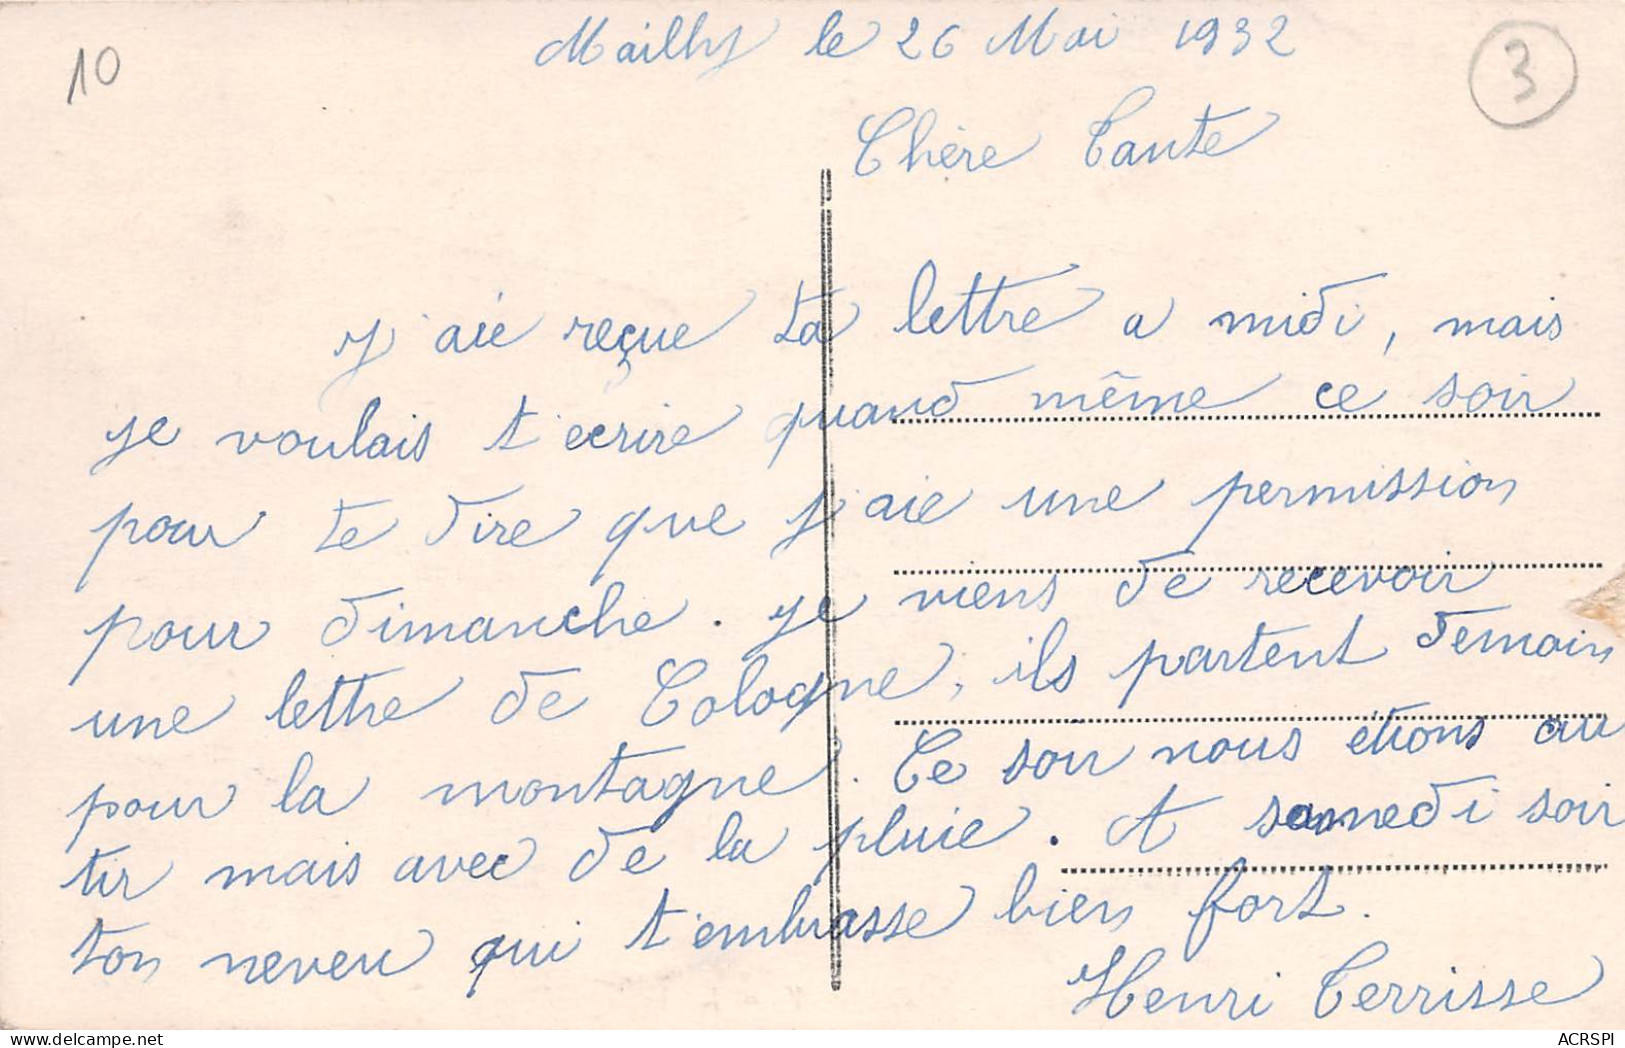 10
Mailly le 26 Mai 1932
3
Chère Tante
J'aie reçue ta lettre a midi, mais
je voulais t'ecrire quand même ce soir
pour te dire que j'aie une permission
pour dimanche. Je viens de recevoir
une lettre de Cologne, ils partent demain
pour la montagne. Ce soir nous étions au
tir mais avec de la pluie. A samedi soir
ton neveu qui t'embrasse bien fort.
Henri Terrisse
www.delcampe.net
ACRSPI